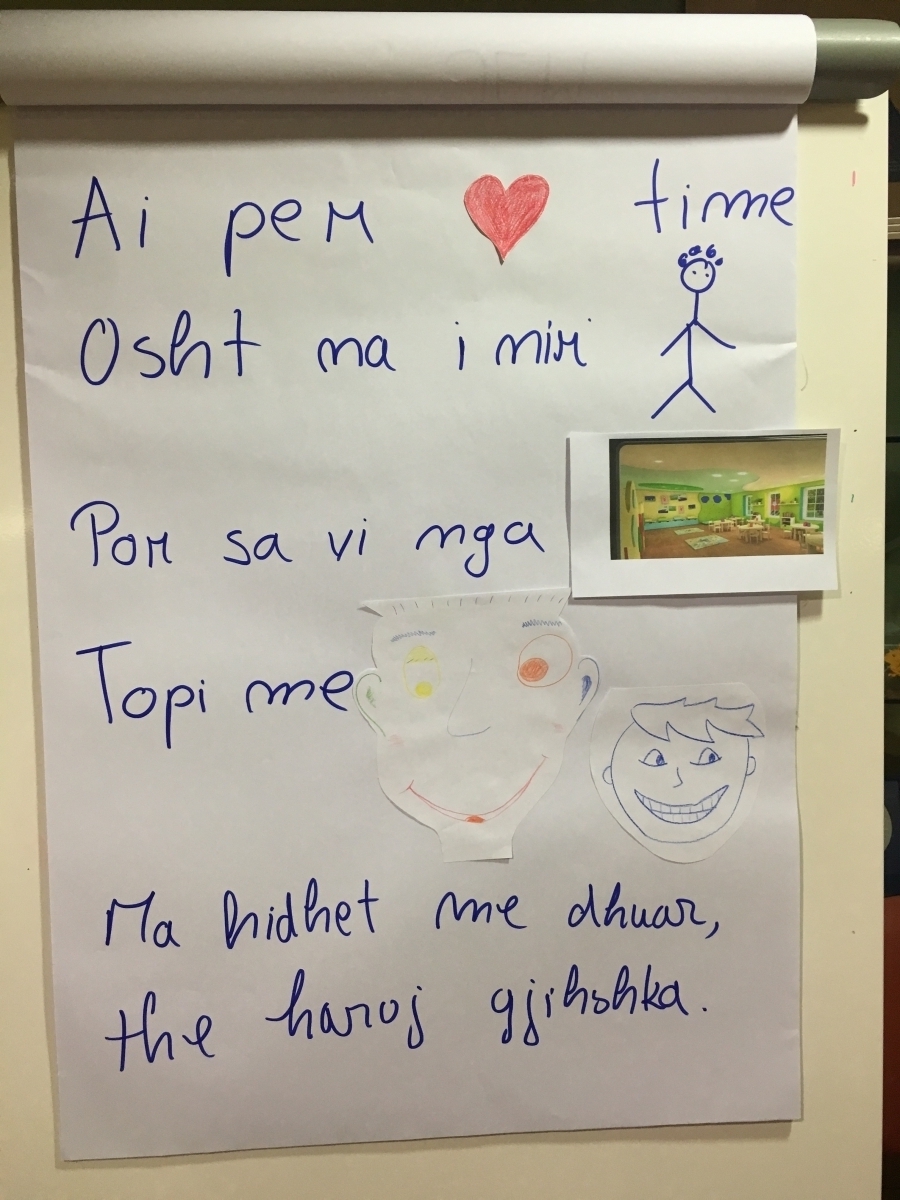 Ai per time
Osht ma i miri
Por sa vi nga
Topi me
Ma hidhet me dhuar,
the haroj gjihshka.